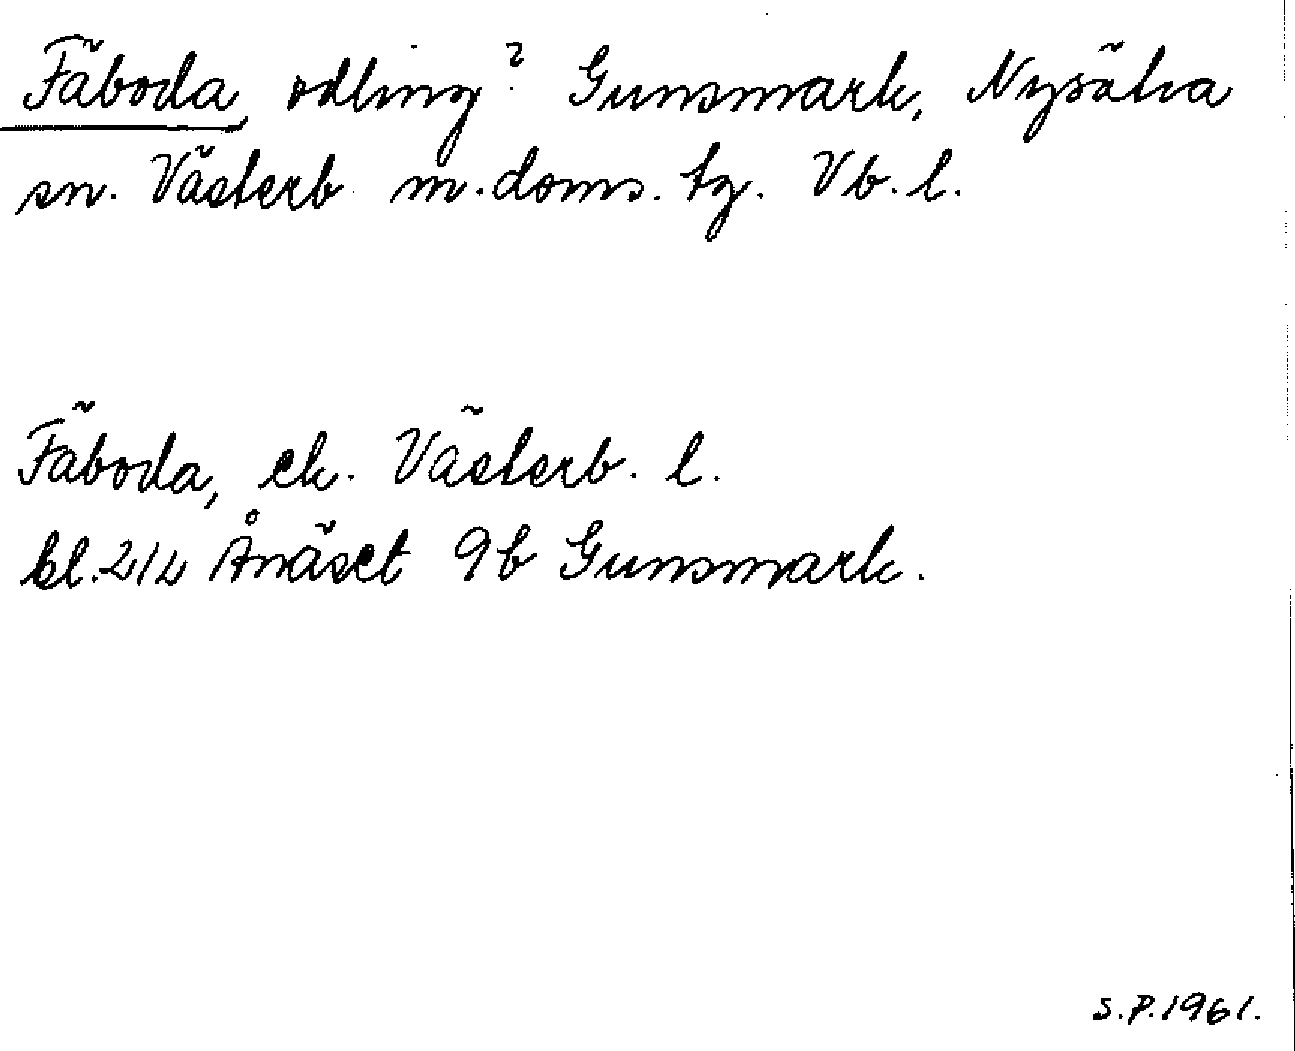 Fäboda, odling? Gunsmark, Nysätra
sn. Västerb m. doms. tg. Vb. l.
Fäboda, ek. Västerb. l.
bl. 21L Ånäset 9b Gunsmark.
S.P. 1961.